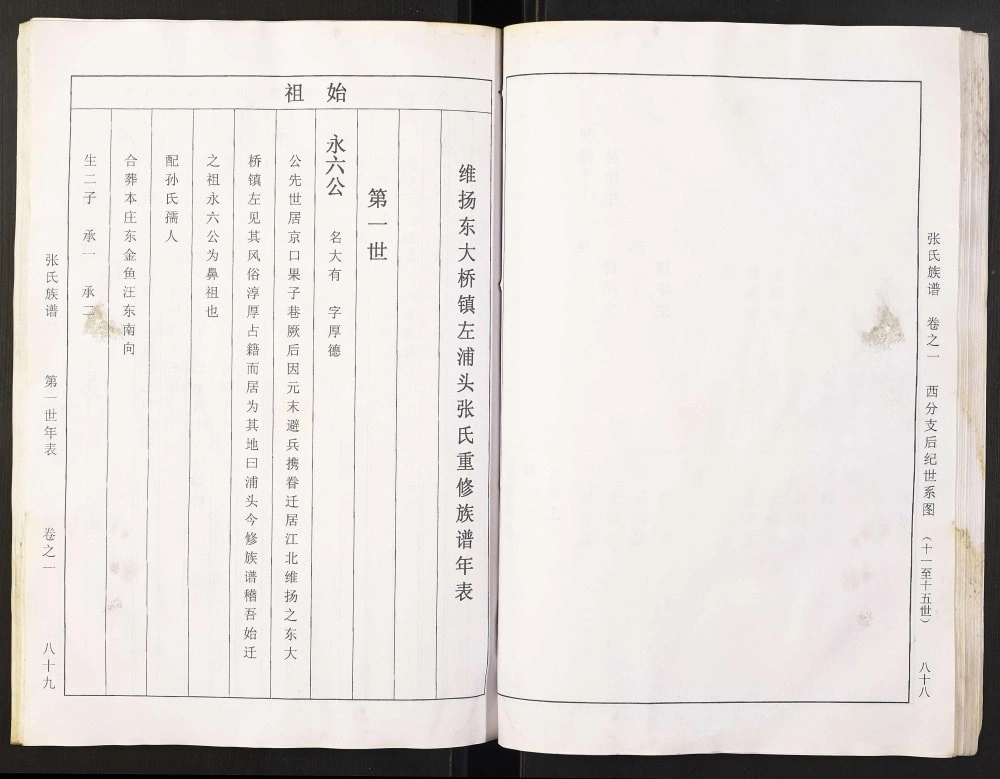 张氏族谱 卷之一 西分支后纪世系图 （十一至十五世） 八十八
始祖
维扬东大桥镇左浦头张氏重修族谱年表
第一世
永六公 名大有 字厚德
公先世居京口果子巷厥后因元末避兵携眷迁居江北维扬之东大
桥镇左见其风俗淳厚占籍而居为其地曰浦头今修族谱稽吾始迁
之祖永六公为鼻祖也
配孙氏孺人
合葬本庄东金鱼汪东南向
生二子 承一 承二
张氏族谱 第一世年表 卷之一 八十九